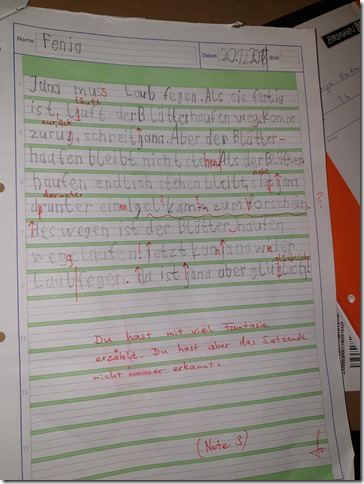 Name Fenja Datum 20.12.2018 Blatt
Jand muss Laub fegen. Als sie fertig
läuft
ist, läuft der Blätterhaufen weg. Komm
zurück
zurü, schreit Jana. Aber der Blätter-
haufen bleibt nicht stehen. Als der Blätter
haufen endlich stehen bleibt, sieht Jana
darunter
drunter einen Igel? kam zum Vorschein.
?
Des wegen ist der Blätterhaufen
weggelaufen! Jetzt kann Jana weiter
glücklich
Laub fegen. Da ist Jana aber glücklich!
Du hast mit viel Fantasie
erzählt. Du hast aber das Satzende
nicht immer erkannt.
(Note 3)